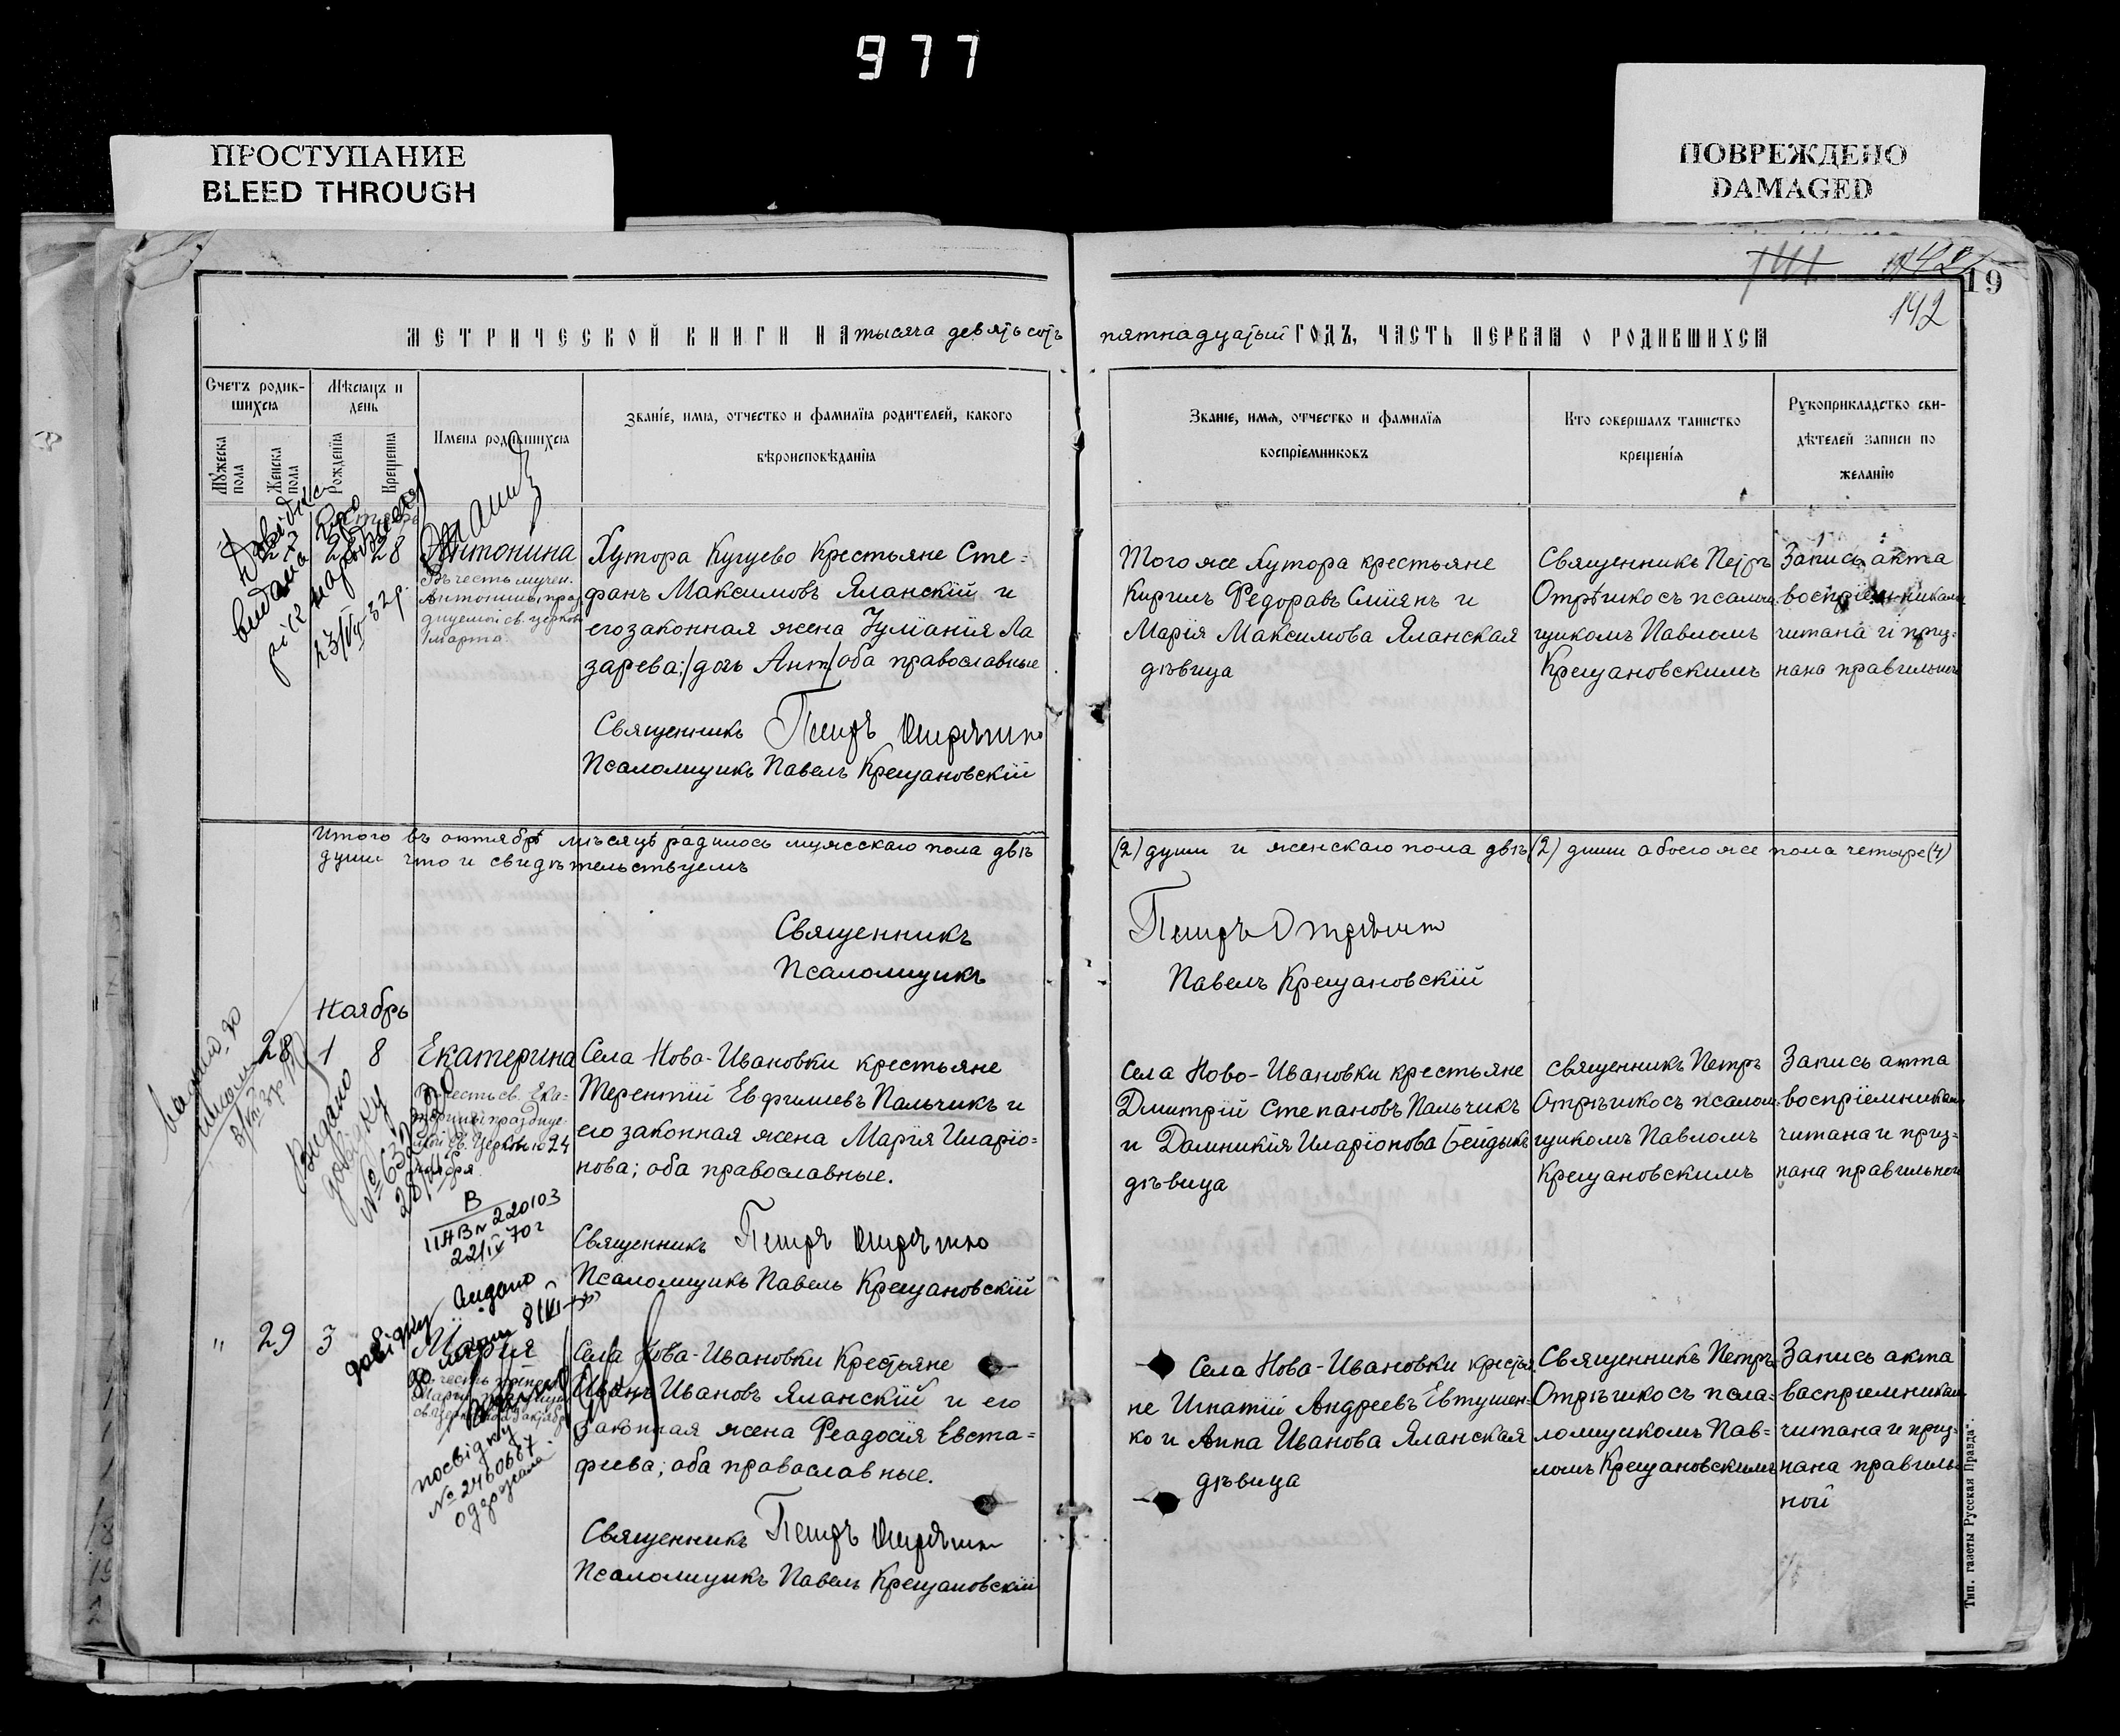 977
ПРОСТУПАНИЕ
BLEED THROUGH
ПОВРЕЖДЕНО
DAMAGED
141
142
19
192
МЕТРИЧЕСКОЙ КНИГИ НА тысяча девятьсотъ
пятнадцатый ГОДЪ, ЧАСТЬ ПЕРВАЯ О РОДИВШИХСЯ
Счетъ родив-
шихся
Мѣсяцъ и
день
Мужеска
пола
Женска
пола
Рожденія
Крещенія
Имена родившихся
Званіе, имя, отчество и фамилія родителей, какого
вѣроисповѣданія
Званіе, имя, отчество и фамилія
воспріемниковъ
Кто совершалъ таинство
крещенія
Рукоприкладство сви-
дѣтелей записи по
желанію
27
28
Антонина
Въ честь мучен.
Антонины, праз
днуемой св. церков
1 марта.
видана
23/VI-32р.
Хутора Кугуево Крестьяне Сте-
фанъ Максимовъ Яланскій и
его законная жена Іуліанія Ла
зарева;/дочь Ант/оба православные
Священникъ Петръ Отрѣшко
Псаломщикъ Павелъ Крещановскій
Того же хутора крестьяне
Кирилъ Федоравъ Сміянъ и
Марія Максимова Яланская
дѣвица
Священникъ Петръ
Отрѣшко съ псалом
щикомъ Павломъ
Крещановскимъ
Запись акта
воспріемникам
читана и приз-
нана правильной
Итого въ октябрѣ мѣсяцѣ радилось мужсскаго пола двѣ
души что и свидѣтельствуемъ
(2) души и женскаго пола двѣ (2) души обоего же пола четыре (4)
Священникъ
Псаломщикъ
Петръ Отрѣшко
Павелъ Крещановскій
Ноябрь
28 1 8
Екатерина
Въ честь св. Ека-
терины праздну
мой св. Церковью 24
ноября
Видано
довідку
№ 632
В
ІІАВ № 220103
22/IX 70г
Села Ново-Ивановки крестьяне
Терентій Евфимиевъ Пальчикъ и
его законная жена Марія Иларіо-
нова; оба православные.
Священникъ Петръ Отрѣшко
Псаломщикъ Павелъ Крещановскій
Села Ново-Ивановки крестьяне
Дмитрій Степановъ Пальчикъ
и Домникія Иларіонова Бейдыкъ
дѣвица
священникъ Петръ
Отрѣшко съ псалом
щикомъ Павломъ
Крещановскимъ
Запись акта
воспріемникам
читана и приз-
нана правильной
" 29 3
Марія
видано
довідку
посвідку
№ 2460687
одержала
Села Нова-Ивановки Крестьяне
Иванъ Ивановъ Яланскій и его
законная жена Феадосія Евста-
фиева; оба православные.
Священникъ Петръ Отрѣшко
Псаломщикъ Павелъ Крещановскій
Села Нова-Ивановки крестья
не Игнатій Андреевъ Евтушен-
ко и Анна Иванова Яланская
дѣвица
Священникъ Петръ
Отрѣшко съ пса-
ломщикомъ Пав-
ломъ Крещановскимъ
Запись акта
васприемникам
читана и приз-
нана правиль-
ной
Тип. газеты Русская Правда".